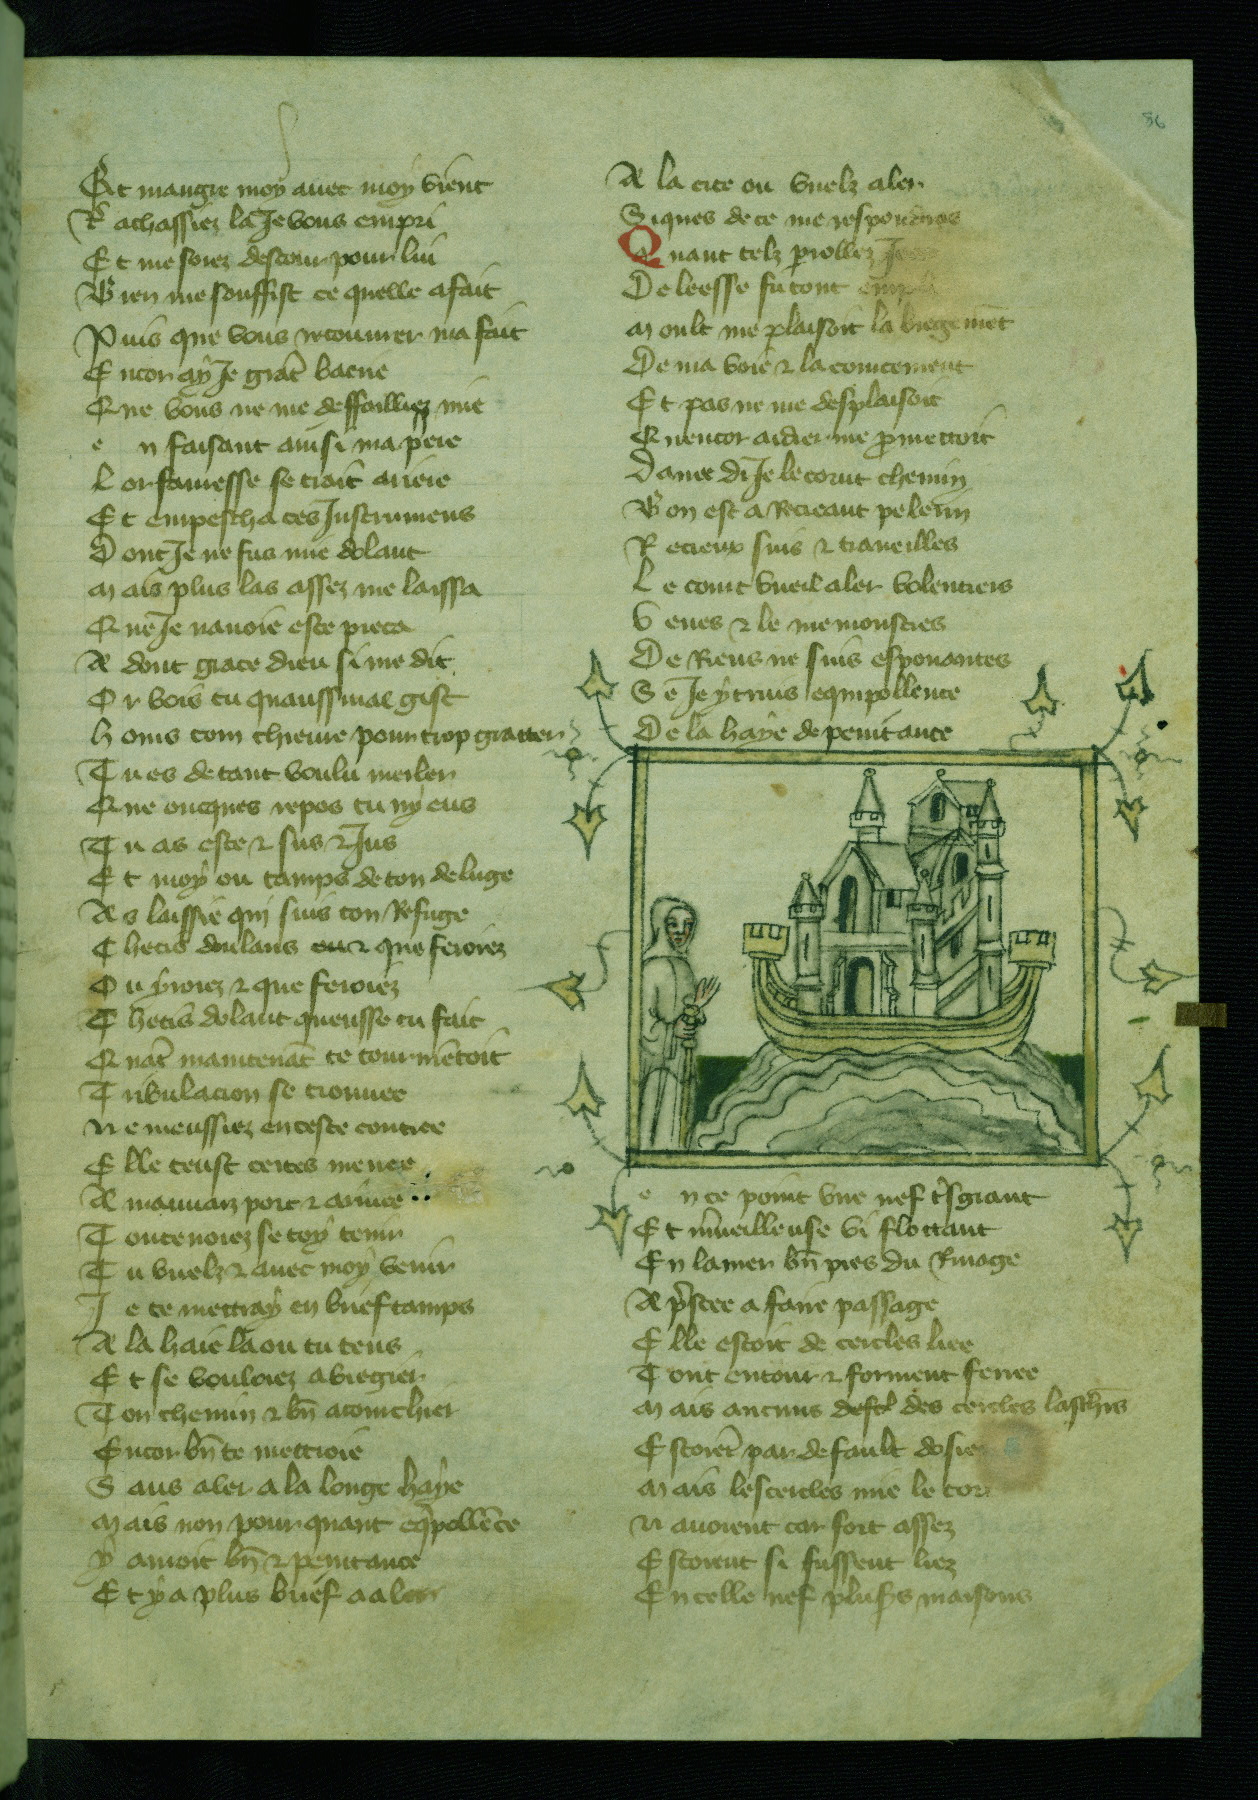 86
Et maugre moy avec moy vient
R achassiez la Je vous empri
Et me soiez descour pour lui
Bien me souffist ce quelle a fait
Puis que vous retourner ma fait
Encor ay Je grāt baerie
Que vous ne me deffailliez mie
e n faisant ainsi ma priere
Lor samesse se trait arriere
Et empescha ces Instrumens
Dont Je ne fus mie dolant
Mais plus las assez me laissa
Que Je navoie este pieca
A dont grace dieu si me dit
Or vois tu quaussi mal gist
homs com chievre pour trop grater
Tu es de tant voulu mesler
Que oncques repos tu ny eus
Tu as este & sus & Jus
Et moy ou tamps de ton deluge
As laissie qui suis ton Refuge
Chetis dolans que feroiez
Ou yroiez & que feroiez
Chetis dolant queusse tu fait
Quāt maintenāt te tourmētoit
Tribulacion se trouvee
Ne meussiez en ceste contree
Elle teust certes menee
A mauvaiz port & arivee
T oute voiez se toy tenir
Tu vuelz & avec moy venir
Je te mettray en brief tamps
A la haie la ou tu tens
Et se vouloiez abregier
Ton chemin & bn̄ acourchier
Encor bn̄ te mettroie
Sans aler a la longe haye
Mais non pour quant eqipollēce
y auroit bn̄ & penitance
Et y a plus brief a aler
A la cite ou vuelz aler
Siques de ce me respondras
Quant telz parollez Je
De leesse fu tout
Moult me plaisoit la bregemēt
De ma voie & la comcement
Et pas ne me desplaisoit
Quencor aidier me pmettoit
Dame di Je le court chemin
Bon est a Recreant pelerin
Recreux suis & traveilles
Le court vueil aler volentiers
Venes & le me monstres
De Riens ne suis espouantes
Se Je y truis equipollence
De la haye de penitance
e n ce point une nef tsgrant
Et mveilleuse vi flottant
En la mer bn̄ pres du Rivage
A pstee a faire passage
Elle estoit de cercles liee
Tout entour & forment ferree
Mais aucuns des cercles laschies
Estoiēt par default dosier
Mais les cercles mie le tor
Navoient car fort assez
Estoient si fussent liez
En celle nef plus's maisons